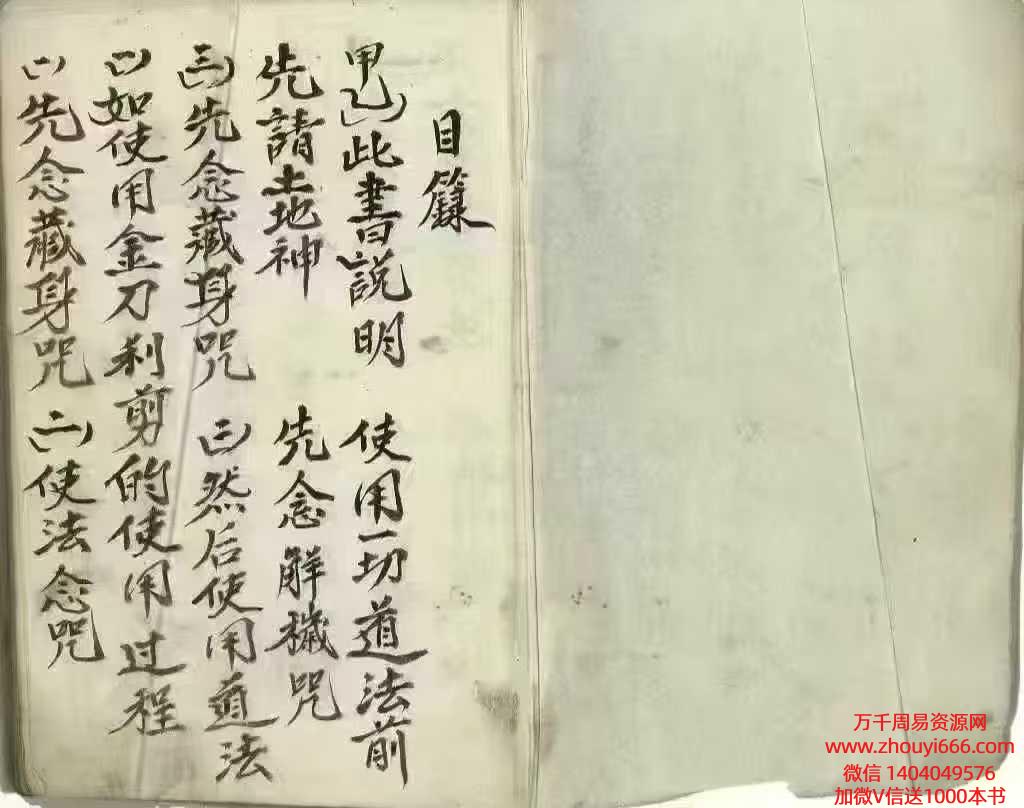 目籙
甲乙)此書説明 使用一切道法前
先請土地神 先念解穢咒
(三)先念藏身咒 (三)然后使用道法
(一)如使用金刀利剪的使用过程
(一)先念藏身咒 (二)使法念咒
万千周易资源网
www.zhouyi666.com
微信 1404049576
加微V信送1000本书